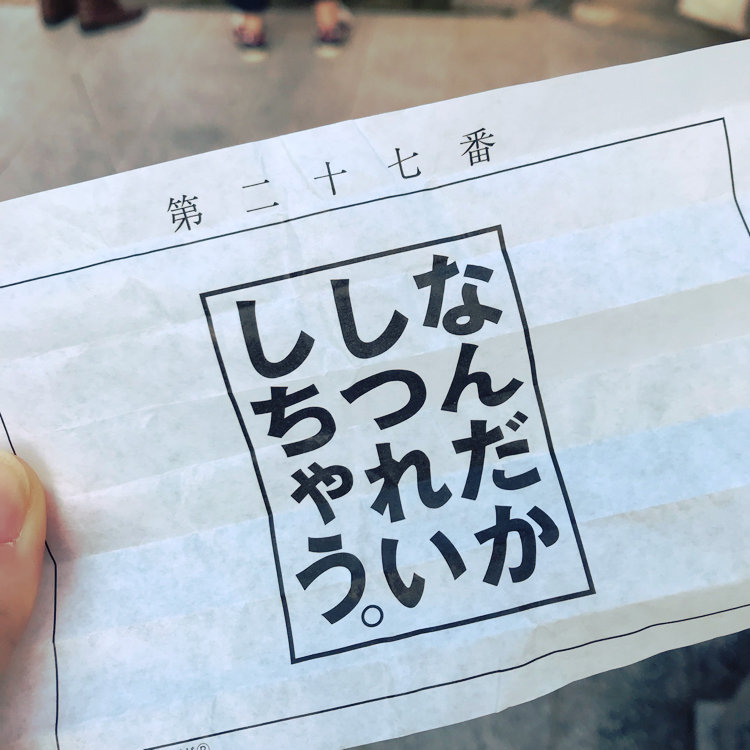 第二十七番
なんだか
しつれい
しちゃう。